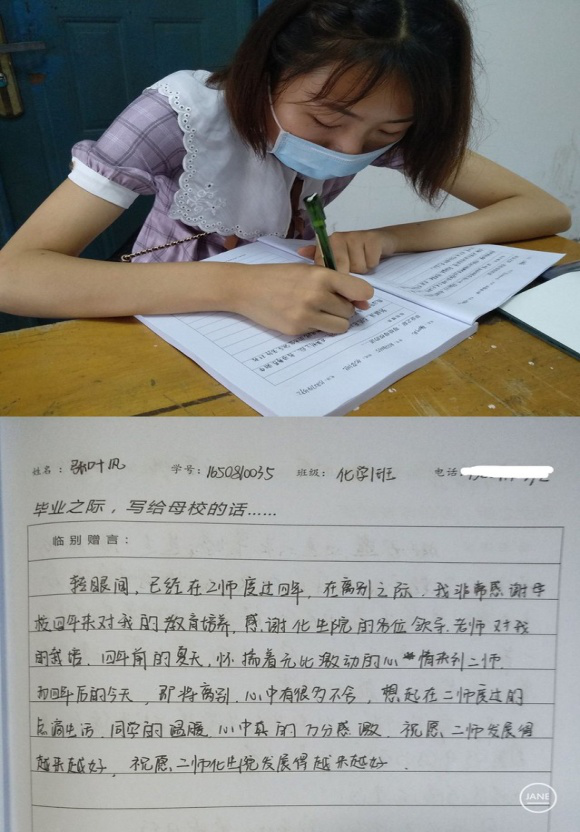 姓名：张叶凤 学号：1650810035 班级：化学1班 电话：
毕业之际，写给母校的话……
临别赠言：
转眼间，已经在二师度过四年，在离别之际，我非常感谢学
校四年来对我的教育培养，感谢化生院的各位领导、老师对我
的关爱。四年前的夏天，怀揣着无比激动的心情来到二师
而四年后的今天，即将离别，心中有很多不舍，想起在二师度过的
点滴生活，同学的温暖，心中真的万分感激。祝愿二师发展得
越来越好，祝愿二师化生院发展得越来越好．
JANE